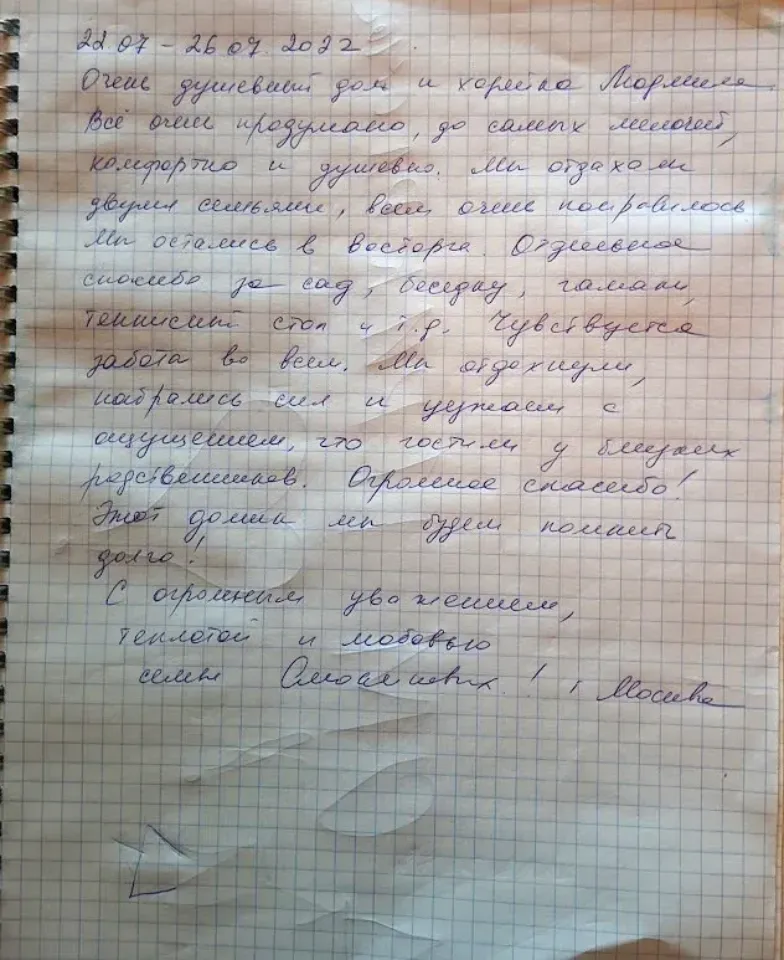 22.07 - 26.07.2022
Очень душевный дом и хозяйка Людмила.
Всё очень продумано, до самых мелочей,
комфортно и душевно. Мы отдахали
двумя семьями, всем очень понравилось.
Мы остались в восторге. Отдельное
спасибо за сад, беседку, гамаки,
теннисный стол и т.д. Чувствуется
забота во всем. Мы отдохнули,
набрались сил и уезжаем с
ощущением, что гостили у близких
родственников. Огромное спасибо!
Этот домик мы будем помнить
долго!
С огромным уважением,
теплотой и любовью
семья ! , Москва